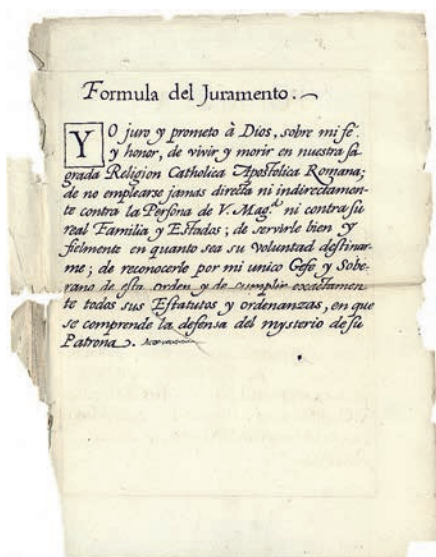 Formula del Juramento.
YO juro y prometo à Dios, sobre mi fé
y honor, de vivir y morir en nuestra sa
grada Religion Catholica Apostolica Romana;
de no emplearse jamas directa ni indirectamen-
te contra la Persona de V. Mag.d ni contra su
real Familia y Estados; de servirle bien y
fielmente en quanto sea su voluntad destinar-
me; de reconocerle por mi unico Gefe y Sobe-
rano de esta orden y de cumplir exactamen
te todos sus Estatutos y ordenanzas, en que
se comprende la defensa del mysterio de su
Patrona.